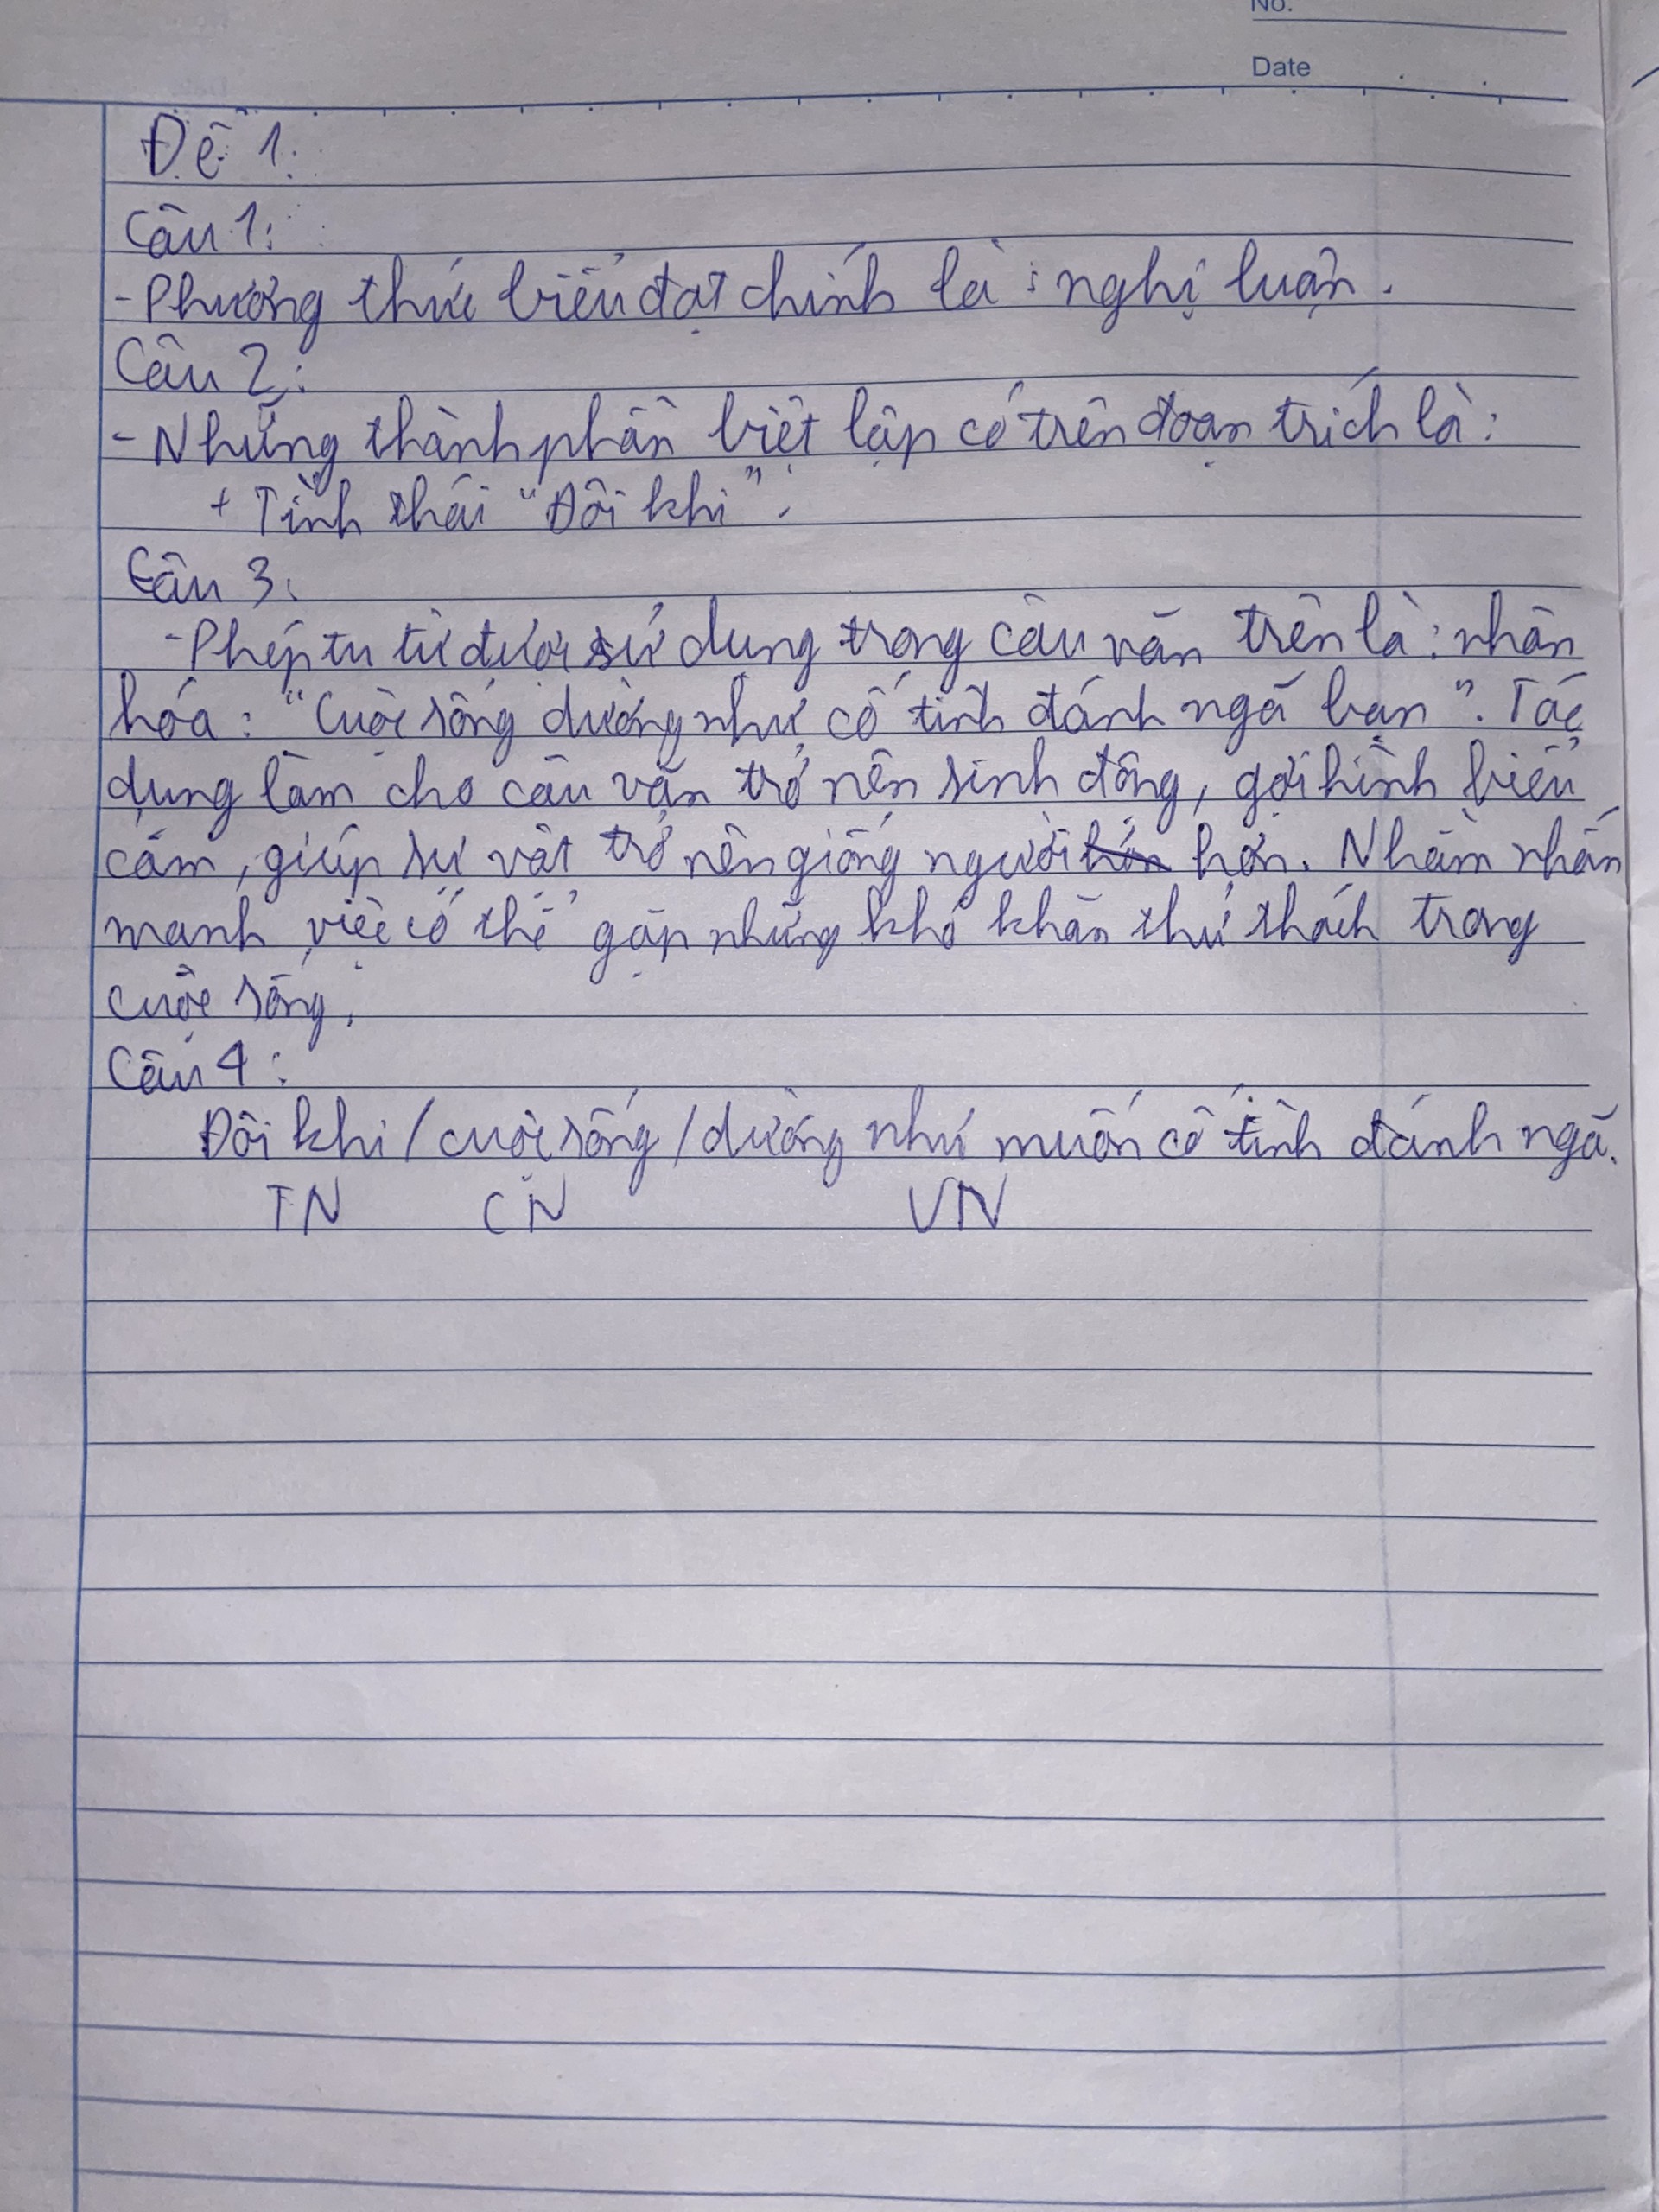 No.
Date
Đề 1:
Câu 1:
- Phương thức biểu đạt chính là : nghị luận.
Câu 2:
- Những thành phần biệt lập có trên đoạn trích là:
+ Tình thái "Đôi khi".
Câu 3:
- Phép tu từ được sử dụng trong câu văn trên là: nhân
hóa : "Cuộc sống dường như cố tình đánh ngã bạn". Tác
dụng làm cho câu văn trở nên sinh động, gợi hình biểu
cảm, giúp sự vật trở nên giống người hơn. Nhằm nhấn
mạnh việc có thể gặp những khó khăn thử thách trong
cuộc sống.
Câu 4:
Đôi khi / cuộc sống / dường như muốn cố tình đánh ngã.
TN CN VN